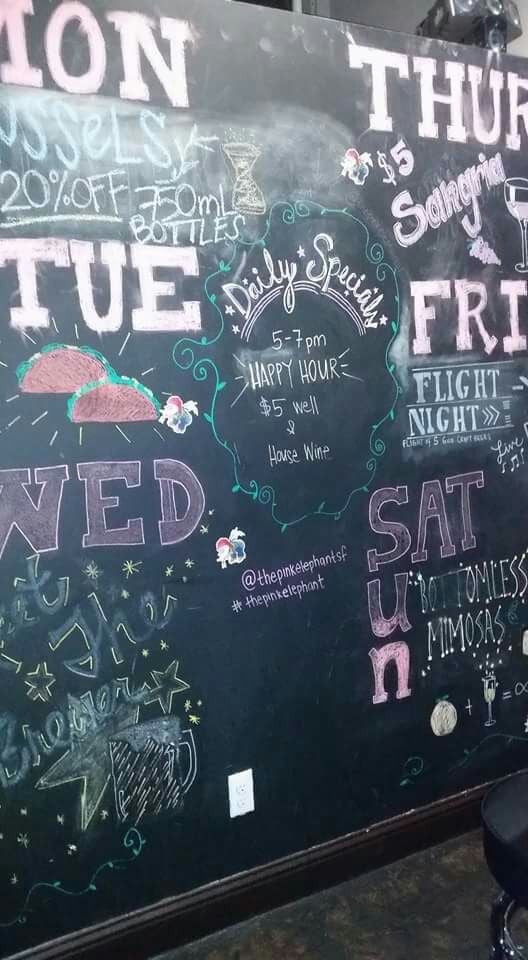 MON
20% OFF 750ml
BOTTLES
TUE
WED
the
Brewer
Daily Specials
5-7pm
HAPPY HOUR
$5 well
&
House Wine
@thepinkelephantsf
# thepinkelephant
THUR
$5
Sangria
FRI
FLIGHT
NIGHT
FLIGHT OF 5 6oz CRAFT BEERS
Live
SAT
SUN
BOTTOMLESS
MIMOSAS
+ = ∞